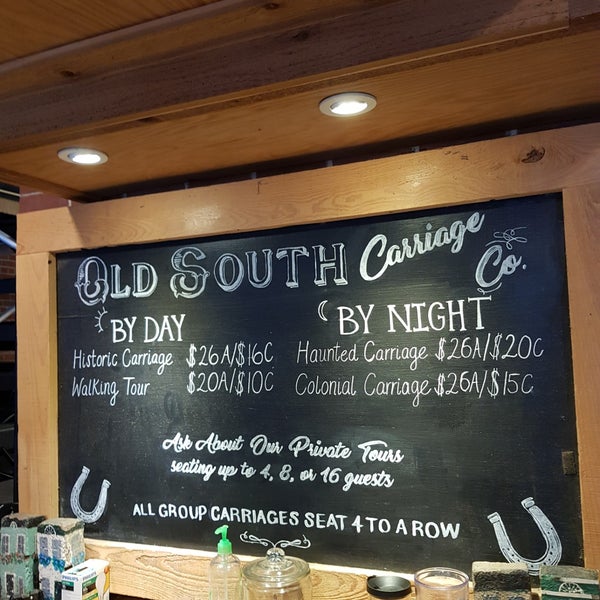 OLD SOUTH Carriage Co.
BY DAY
Historic Carriage $26A/$16C
Walking Tour $20A/$10C
BY NIGHT
Haunted Carriage $26A/$20C
Colonial Carriage $26A/$15C
Ask About Our Private Tours
seating up to 4, 8, or 16 guests
ALL GROUP CARRIAGES SEAT 4 TO A ROW